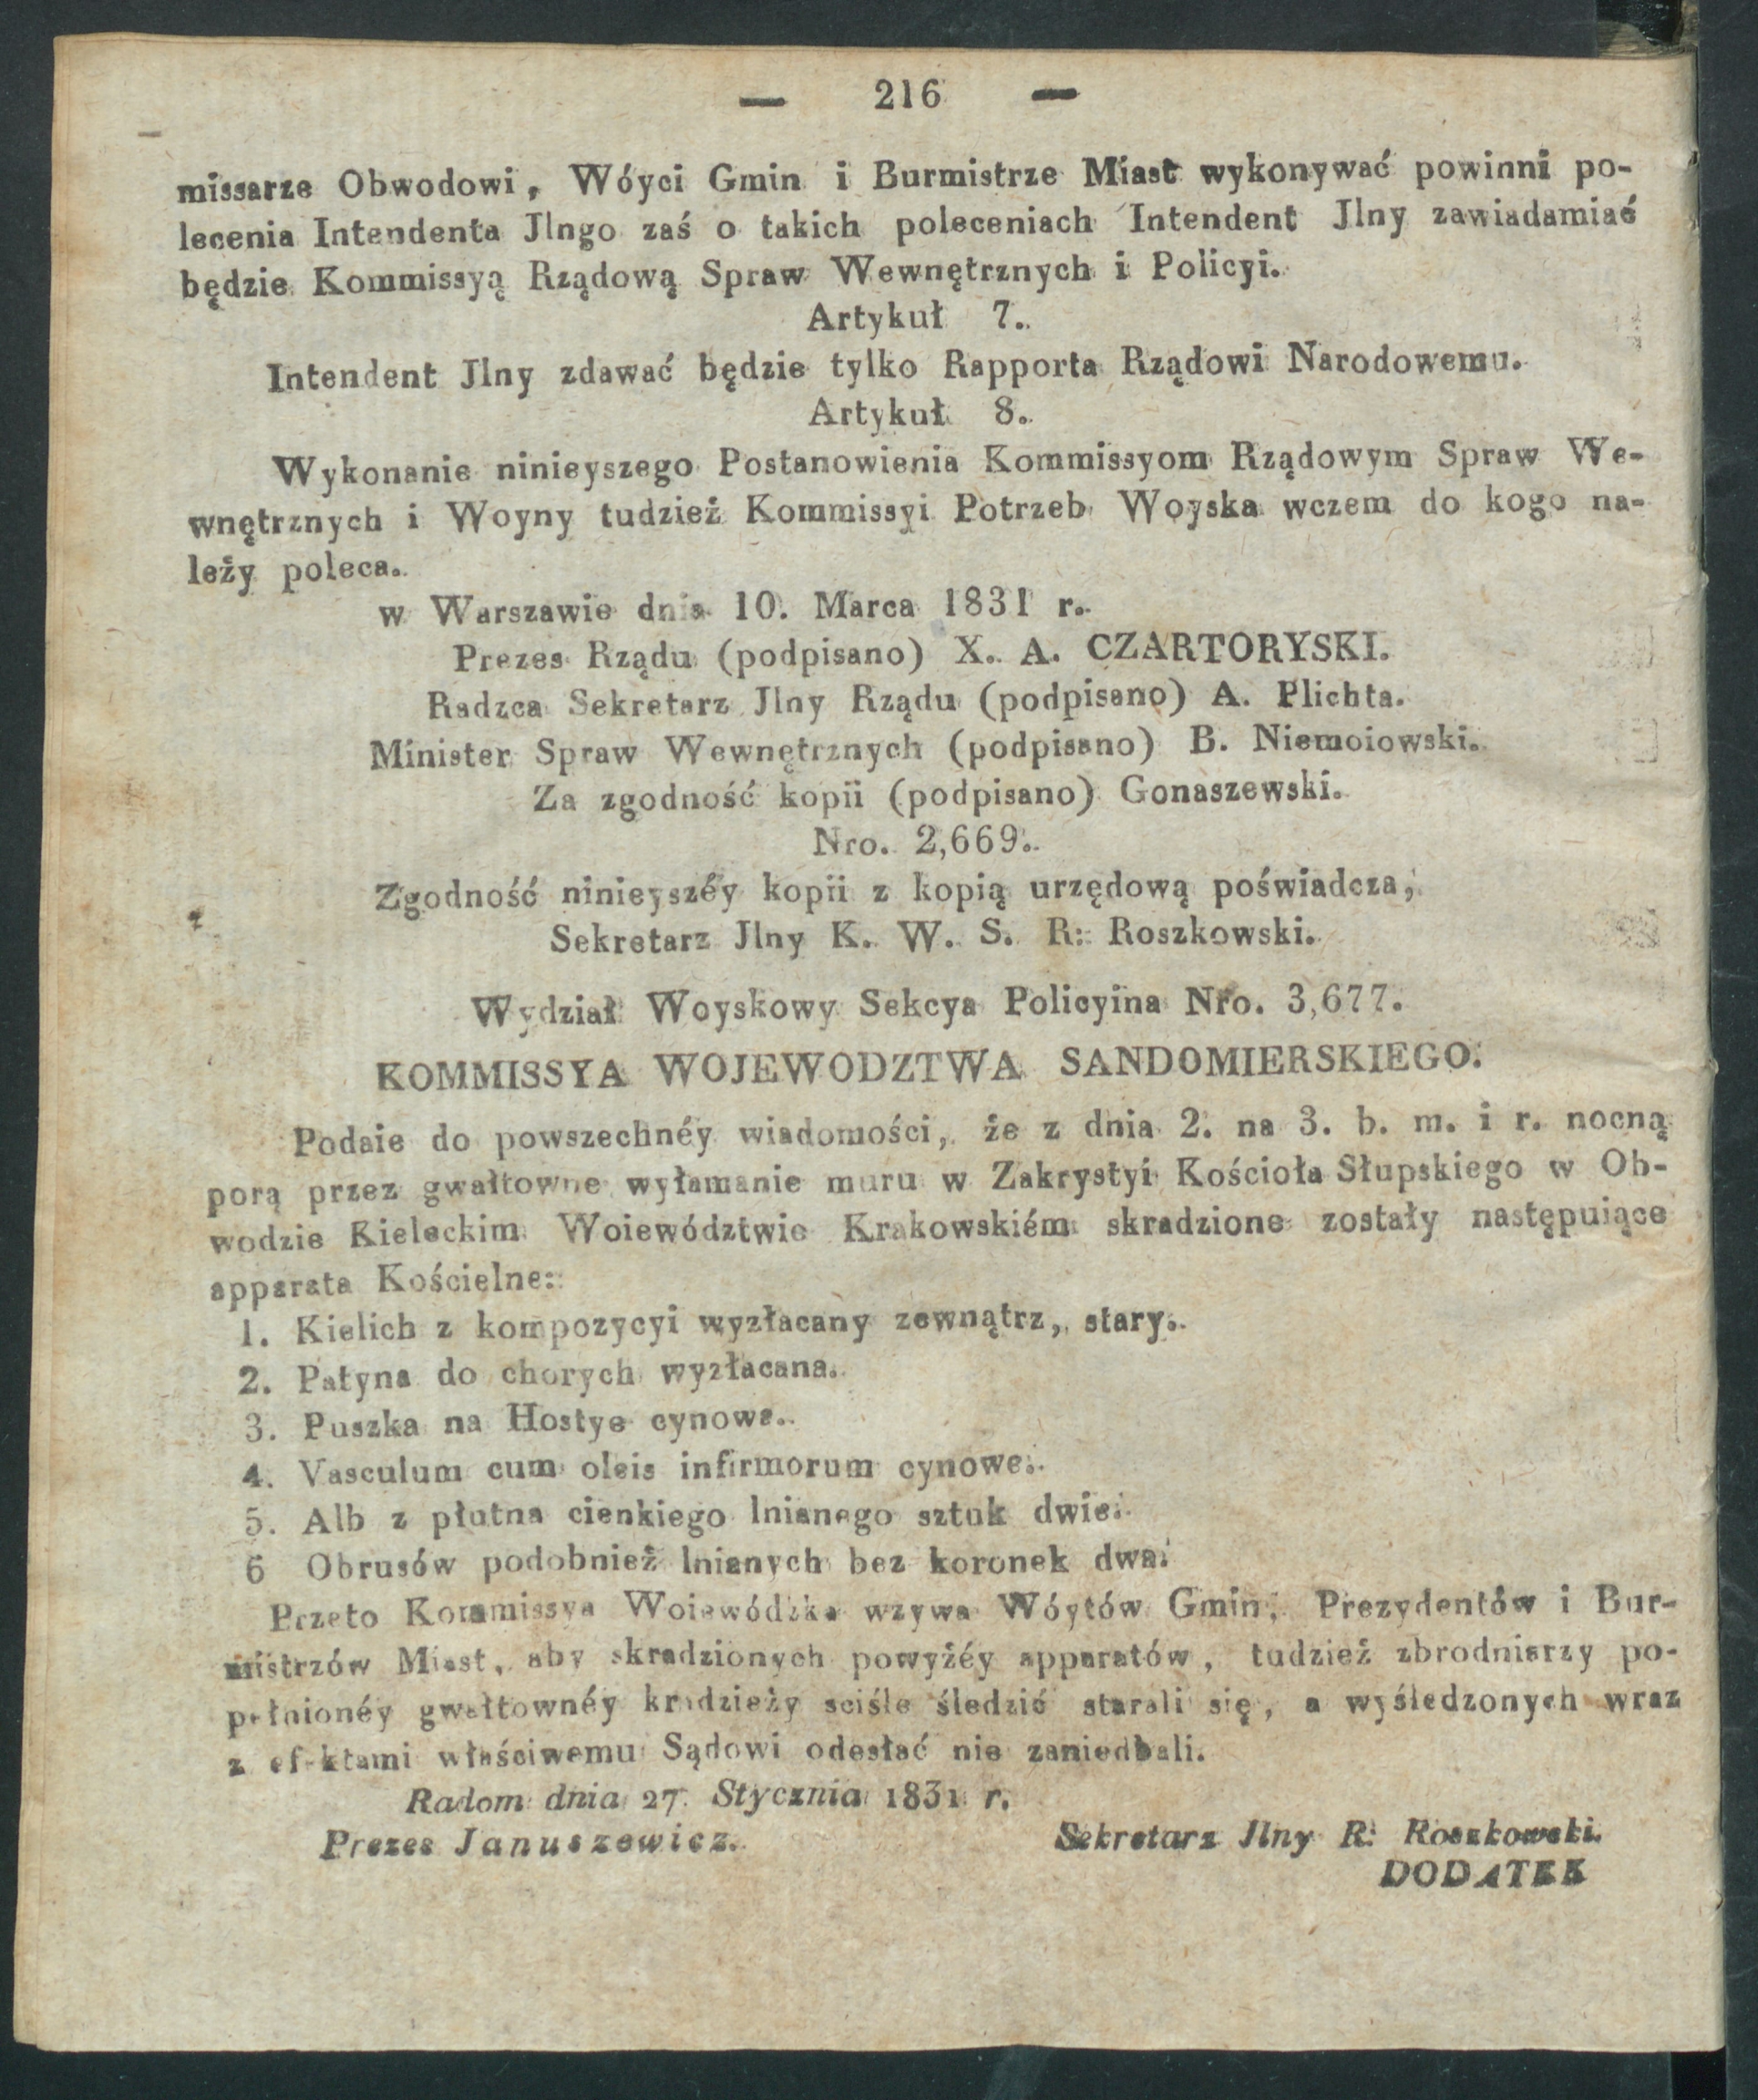 — 216 —
missarze Obwodowi, Wóyci Gmin i Burmistrze Miast wykonywać powinni po-
lecenia Intendenta Jlngo zaś o takich poleceniach Intendent Jlny zawiadamiać
będzie Kommissyą Rządową Spraw Wewnętrznych i Policyi.
Artykuł 7.
Intendent Jlny zdawać będzie tylko Rapporta Rządowi Narodowemu.
Artykuł 8.
Wykonanie ninieyszego Postanowienia Kommissyom Rządowym Spraw We-
wnętrznych i Woyny tudzież Kommissyi Potrzeb Woyska wczem do kogo na-
leży poleca.
w Warszawie dnia 10. Marca 1831 r.
Prezes Rządu (podpisano) X. A. CZARTORYSKI.
Radzca Sekretarz Jlny Rządu (podpisano) A. Plichta.
Minister Spraw Wewnętrznych (podpisano) B. Niemoiowski.
Za zgodność kopii (podpisano) Gonaszewski.
Nro. 2,669.
Zgodność ninieyszéy kopii z kopią urzędową poświadcza,
Sekretarz Jlny K. W. S. R: Roszkowski.
Wydział Woyskowy Sekcya Policyina Nro. 3,677.
KOMMISSYA WOJEWODZTWA SANDOMIERSKIEGO.
Podaie do powszechnéy wiadomości, że z dnia 2. na 3. b. m. i r. nocną
porą przez gwałtowne wyłamanie muru w Zakrystyi Kościoła Słupskiego w Ob-
wodzie Kieleckim Woiewództwie Krakowskiém skradzione zostały następuiące
apparata Kościelne:
1. Kielich z kompozycyi wyzłacany zewnątrz, stary.
2. Patyna do chorych wyzłacana.
3. Puszka na Hostye cynowa.
4. Vasculum cum oleis infirmorum cynowe.
5. Alb z płutna cienkiego lnianego sztuk dwie.
6 Obrusów podobnież lnianych bez koronek dwa.
Przeto Kommissya Woiewódzka wzywa Wóytów Gmin, Prezydentów i Bur-
mistrzów Miast, aby skradzionych powyżéy apparatów, tudzież zbrodniarzy po-
pełnionéy gwałtownéy kradzieży sciśle śledzić starali się, a wyśledzonych wraz
z efektami właściwemu Sądowi odesłać nie zaniedbali.
Radom dnia 27. Stycznia 1831 r.
Prezes Januszewicz. Sekretarz Jlny R: Roszkowski.
DODATEK